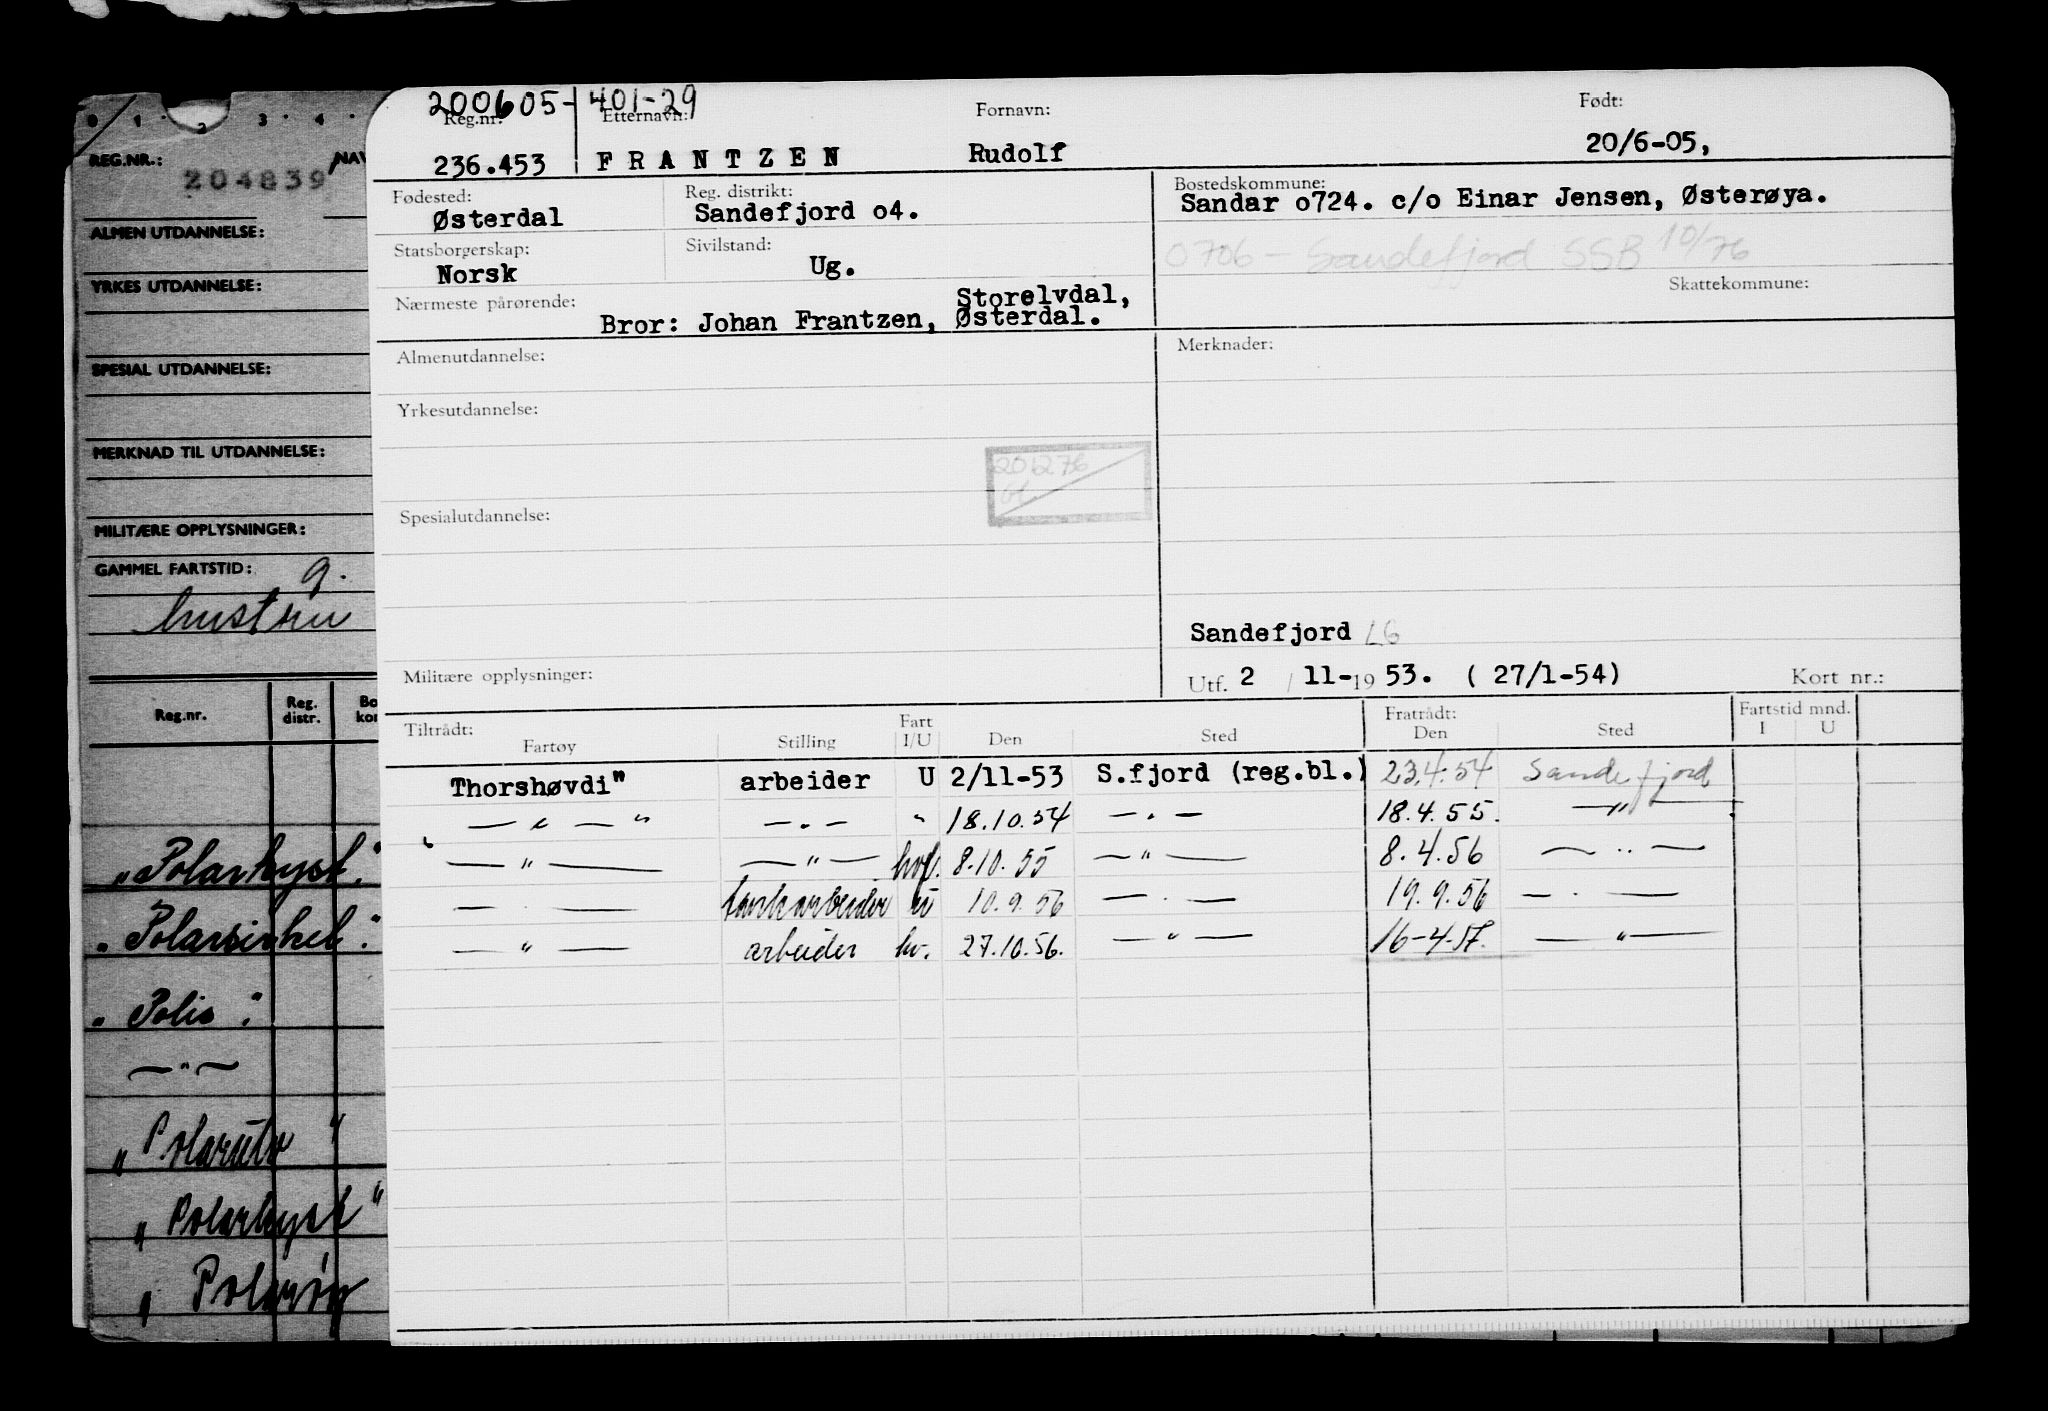 0 1 2 3 4
REG.NR.:
204839
NAV
ALMEN UTDANNELSE:
YRKES UTDANNELSE:
SPESIAL UTDANNELSE:
MERKNAD TIL UTDANNELSE:
MILITÆRE OPPLYSNINGER:
GAMMEL FARTSTID: 9.
Reg.nr. Reg. distr. Bo kor
"Polarkyst"
"Polarsirkel"
"Polis"
— " —
"Polarkyst"
200605-401-29
Reg.nr. Etternavn: Fornavn: Født:
236.453 FRANTZEN Rudolf 20/6-05,
Fødested: Reg. distrikt: Bostedskommune:
Østerdal Sandefjord o4. Sandar o724. c/o Einar Jensen, Østerøya.
Statsborgerskap: Sivilstand: 0706 - Sandefjord SSB 10/76
Norsk Ug.
Nærmeste pårørende: Storelvdal, Skattekommune:
Bror: Johan Frantzen, Østerdal.
Almenutdannelse: Merknader:
Yrkesutdannelse:
Spesialutdannelse:
Sandefjord LG
Militære opplysninger: Utf. 2 / 11-1953. ( 27/1-54) Kort nr.:
Tiltrådt: Fratrådt: Fartstid mnd.
Fartøy Stilling Fart I/U Den Sted Den Sted I U
Thorshøvdi" arbeider U 2/11-53 S.fjord (reg.bl.) 23.4.54 Sandefjord
— " — " — " — " 18.10.54 — " — 18.4.55. — " —
— " — — " — hvf. 8.10.55 — " — 8.4.56 — " —
— " — tankarbeider u 10.9.56 — " — 19.9.56 — " —
— " — arbeider hv. 27.10.56. — " — 16-4-57. — " —